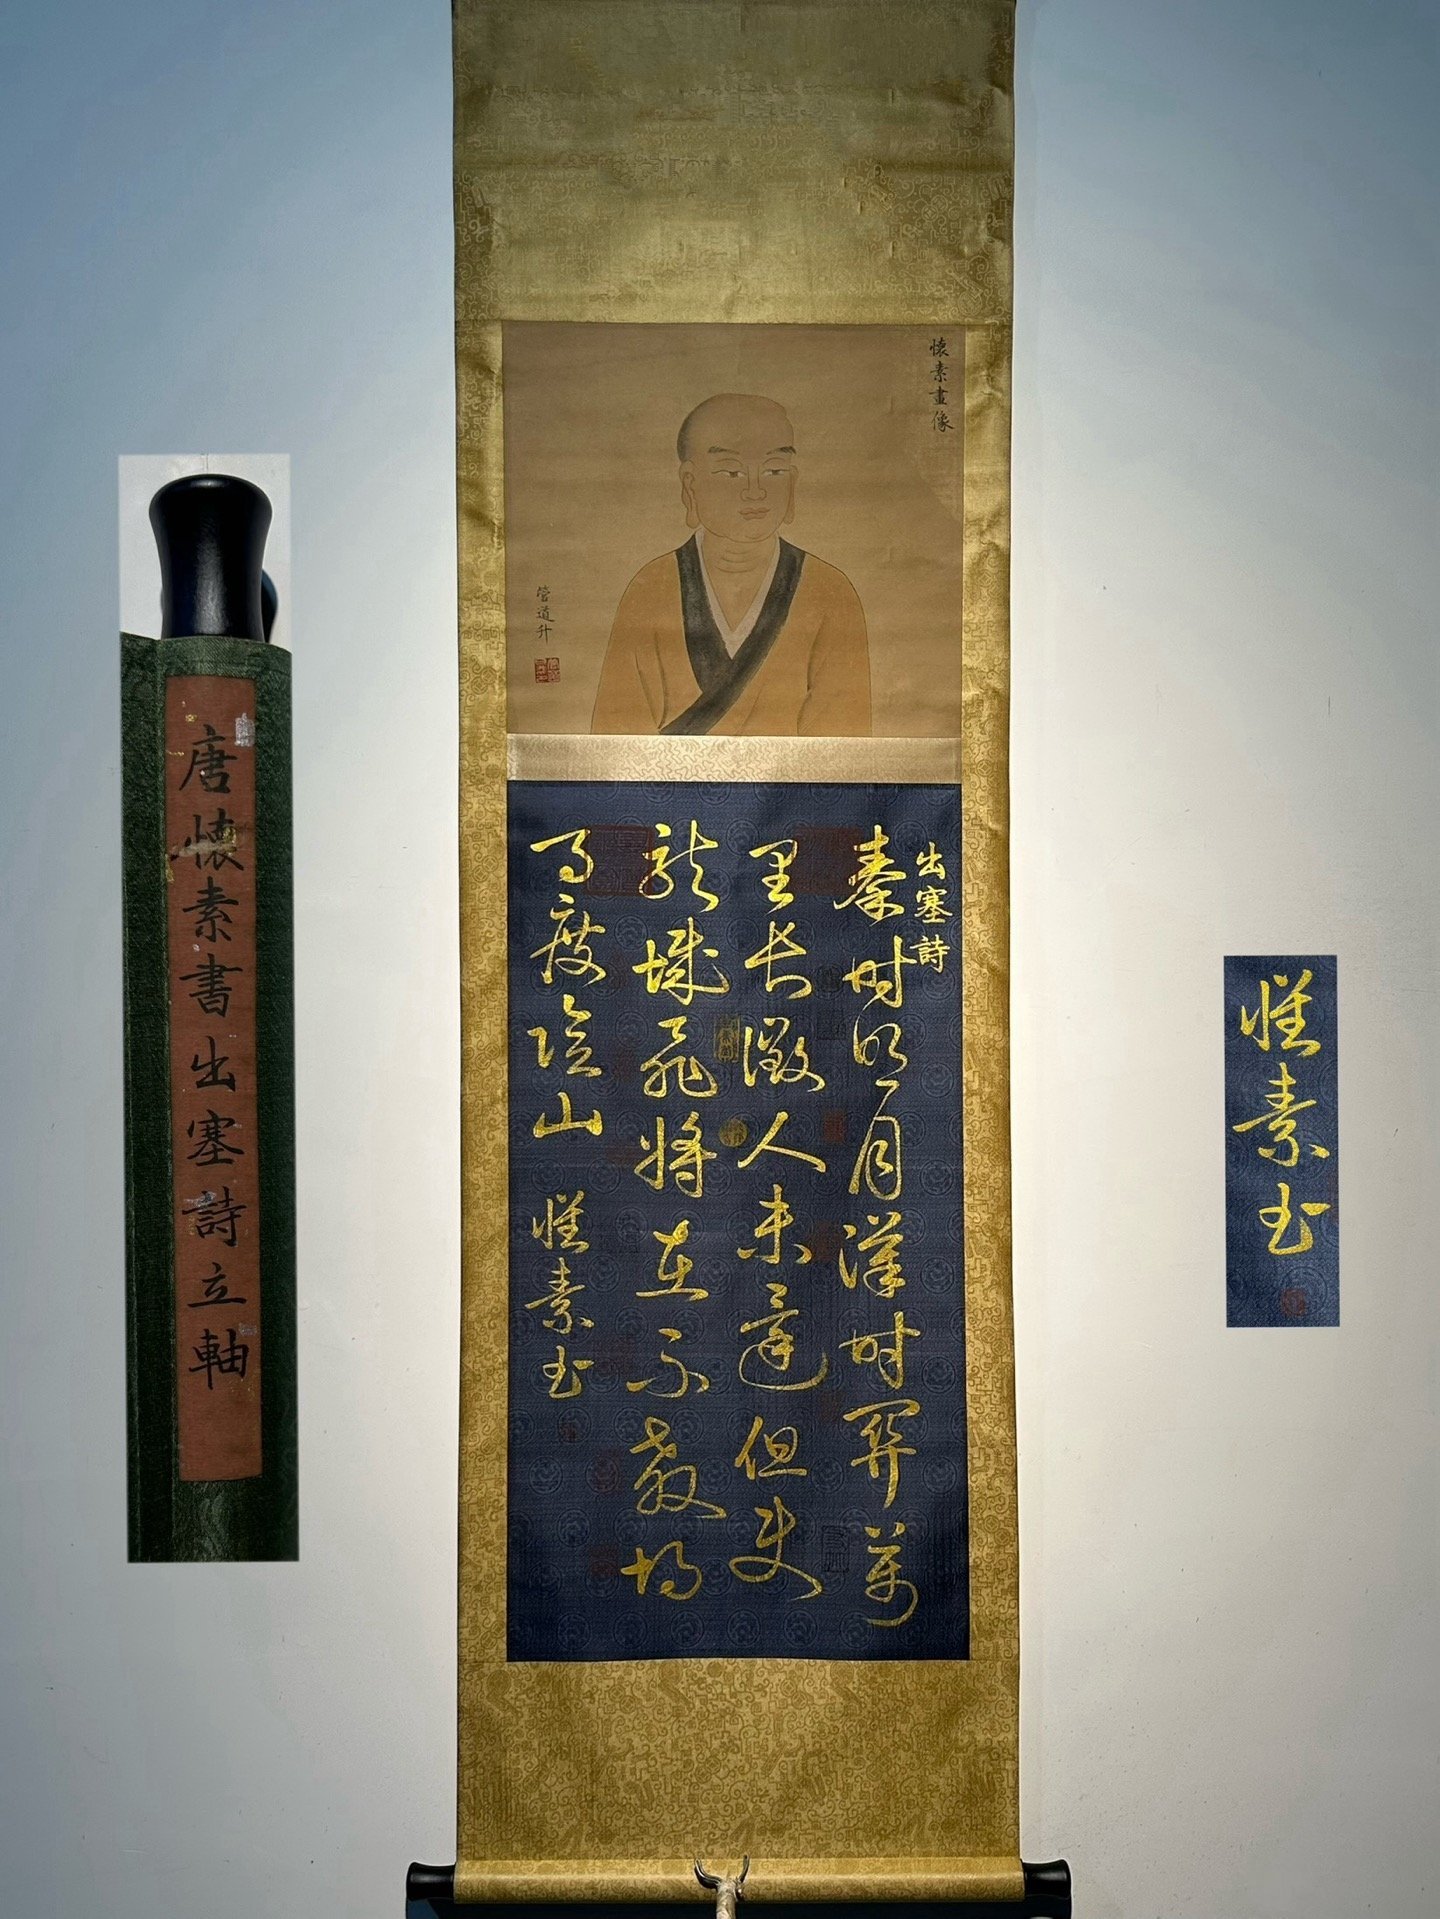 唐懷素書出塞詩立軸
懷素畫像
管道升
出塞詩
秦時明月漢時關萬
里長徵人未還但使
龍城飛將在不教胡
馬度陰山 懷素書
懷素書